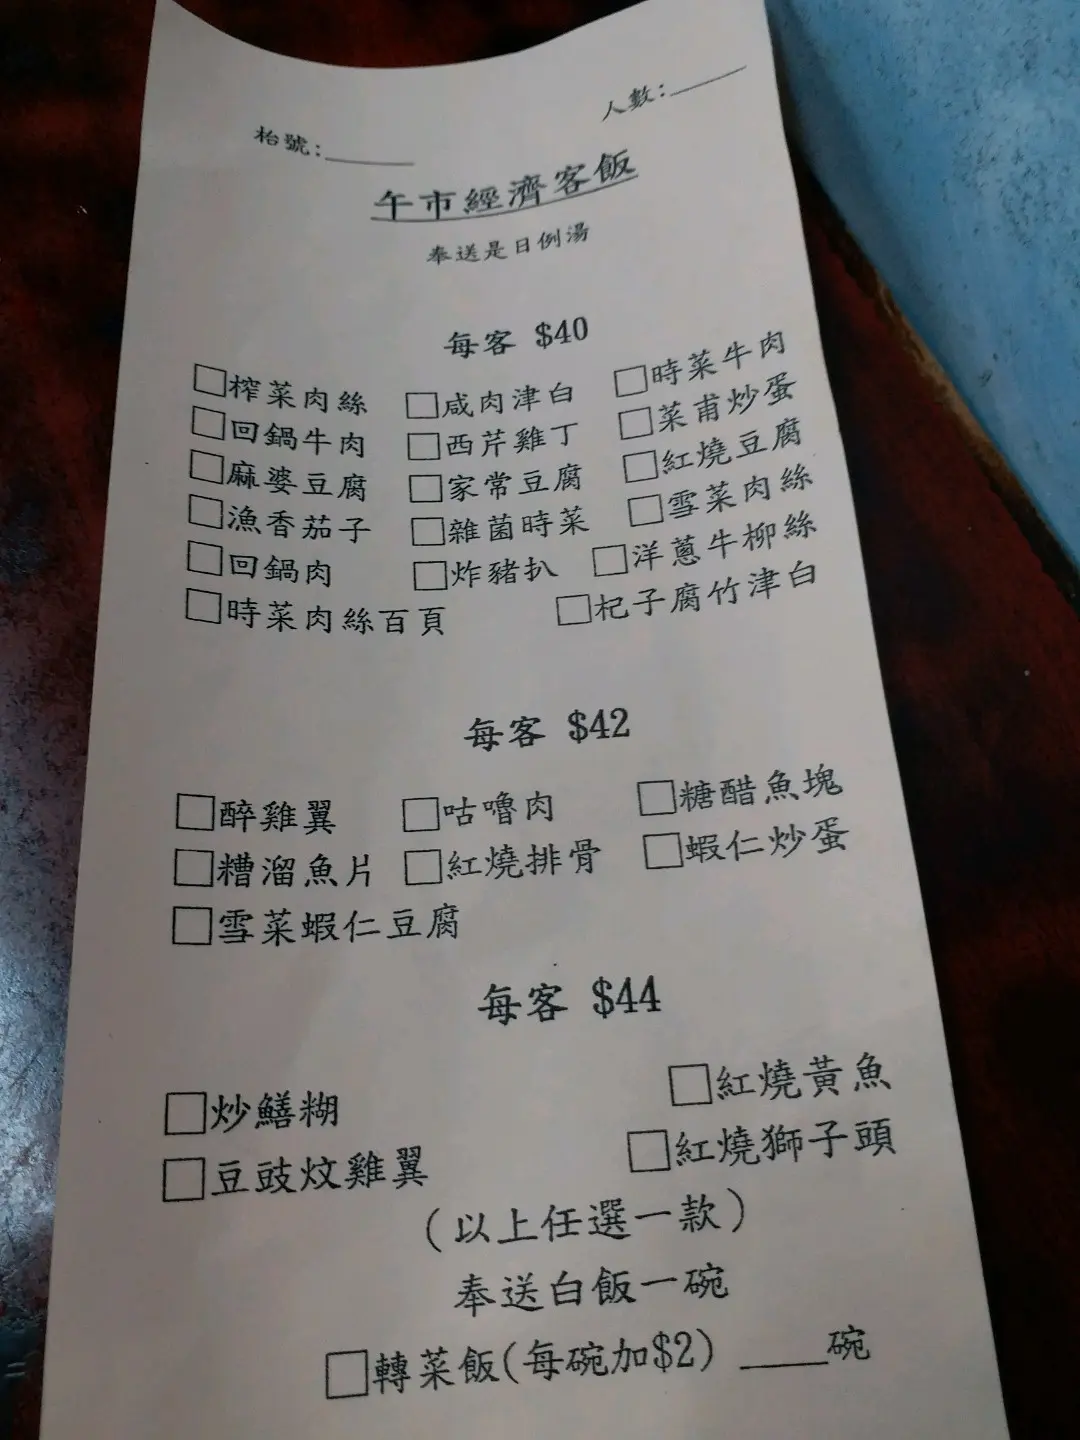 枱號:______ 人數:______
午市經濟客飯
奉送是日例湯
每客 $40
□榨菜肉絲 □咸肉津白 □時菜牛肉
□回鍋牛肉 □西芹雞丁 □菜甫炒蛋
□麻婆豆腐 □家常豆腐 □紅燒豆腐
□漁香茄子 □雜菌時菜 □雪菜肉絲
□回鍋肉 □炸豬扒 □洋蔥牛柳絲
□時菜肉絲百頁 □杞子腐竹津白
每客 $42
□醉雞翼 □咕嚕肉 □糖醋魚塊
□糟溜魚片 □紅燒排骨 □蝦仁炒蛋
□雪菜蝦仁豆腐
每客 $44
□炒鱔糊 □紅燒黃魚
□豆豉炆雞翼 □紅燒獅子頭
(以上任選一款)
奉送白飯一碗
□轉菜飯(每碗加$2) ____碗